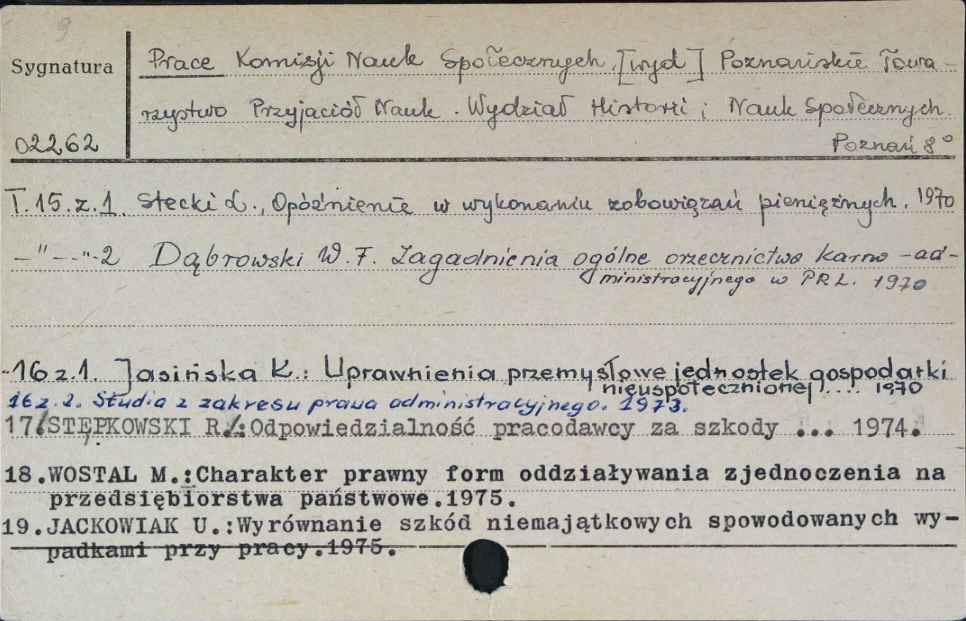 9
Sygnatura
Prace Komisji Nauk Społecznych. [wyd] Poznańskie Towa-
rzystwo Przyjaciół Nauk. Wydział Historii i Nauk Społecznych.
02262
Poznań 8°
T.15.z.1. Stecki L., Opóźnienie w wykonaniu zobowiązań pieniężnych. 1970
-"- -"-2 Dąbrowski W. F. Zagadnienia ogólne orzecznictwa karno-ad-
ministracyjnego w PRL. 1970
-16 z.1. Jasińska K.: Uprawnienia przemysłowe jednostek gospodarki
nieuspołecznionej .... 1970
16 z. 2. Studia z zakresu prawa administracyjnego. 1973.
17/STĘPKOWSKI R.: Odpowiedzialność pracodawcy za szkody ... 1974.
18.WOSTAL M.:Charakter prawny form oddziaływania zjednoczenia na
przedsiębiorstwa państwowe.1975.
19.JACKOWIAK U.:Wyrównanie szkód niemajątkowych spowodowanych wy-
padkami przy pracy.1975.